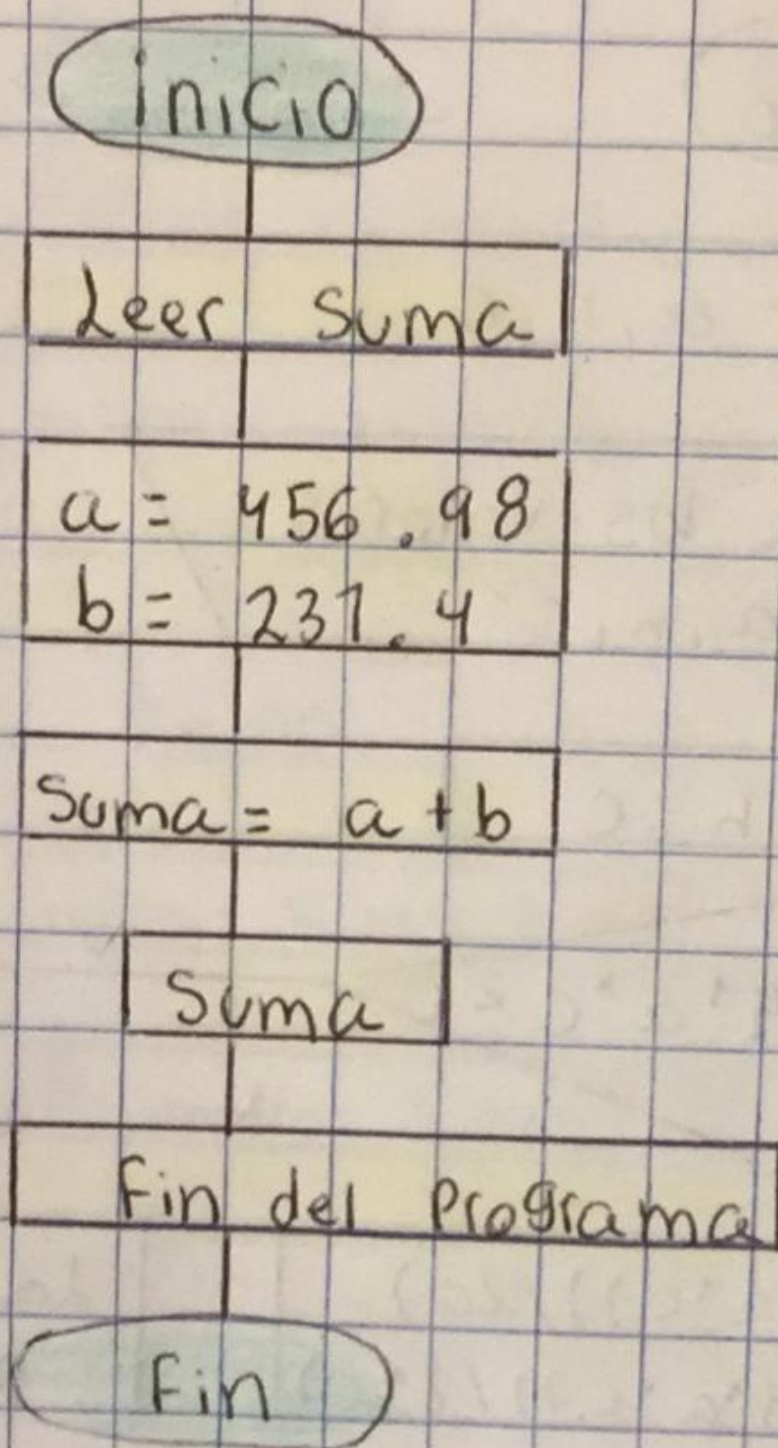 inicio
Leer Suma
a = 456.98
b = 231.4
Suma = a + b
Suma
Fin del Programa
Fin